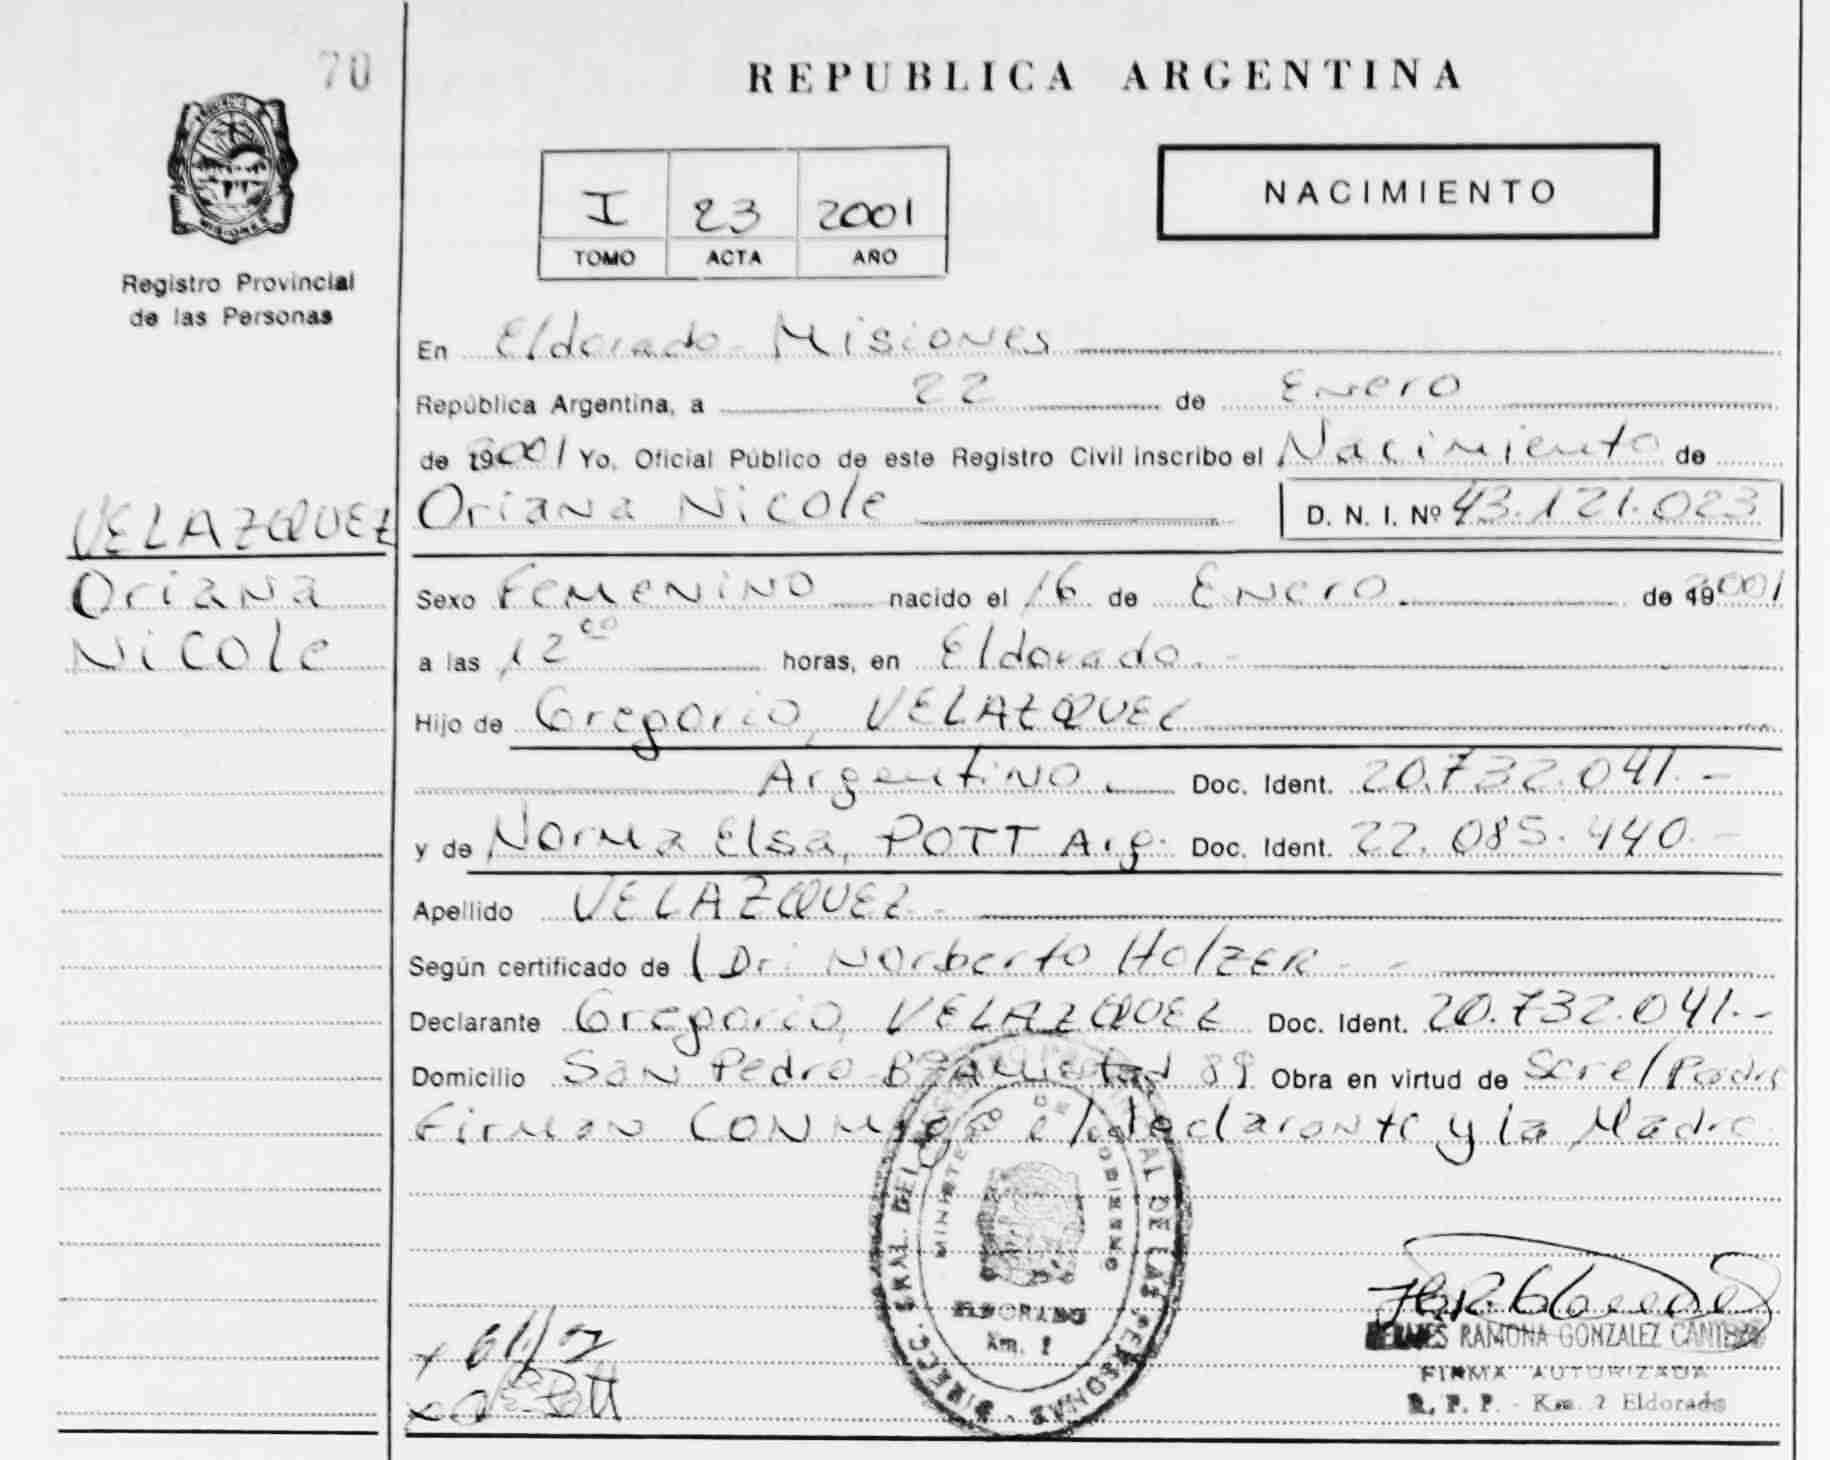 70
REPUBLICA ARGENTINA
MISIONES
Registro Provincial
de las Personas
I 23 2001
TOMO ACTA AÑO
NACIMIENTO
En Eldorado - Misiones
República Argentina, a 22 de Enero
de 2001 Yo, Oficial Público de este Registro Civil inscribo el Nacimiento de
Oriana Nicole D. N. I. Nº 43.121.023
VELAZQUEZ
Oriana
Nicole
Sexo Femenino nacido el 16 de Enero de 2001
a las 12 00 horas, en Eldorado.-
Hijo de Gregorio, VELAZQUEZ
Argentino Doc. Ident. 20.732.041.-
y de Norma Elsa, POTT Arg. Doc. Ident. 22.085.440.-
Apellido VELAZQUEZ.-
Según certificado de Dr. Norberto HolzER - -
Declarante Gregorio, VELAZQUEZ Doc. Ident. 20.732.041.-
Domicilio San Pedro 89 Obra en virtud de
Firman conmigo el declarante y la Madre.
DIRECC. GRAL. DEL AL DE LAS PERSONAS
MINISTERIO DE GOBIERNO
ELDORADO
Km. 2
Pott
RAMONA GONZALEZ
FIRMA AUTORIZADA
R. P. P. - Km. 2 Eldorado